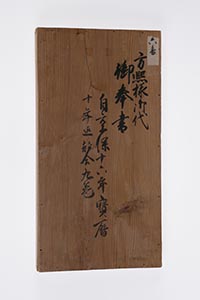 六番
方熈様御代
御奉書
自享保十六年寳暦
十年迄都合九巻